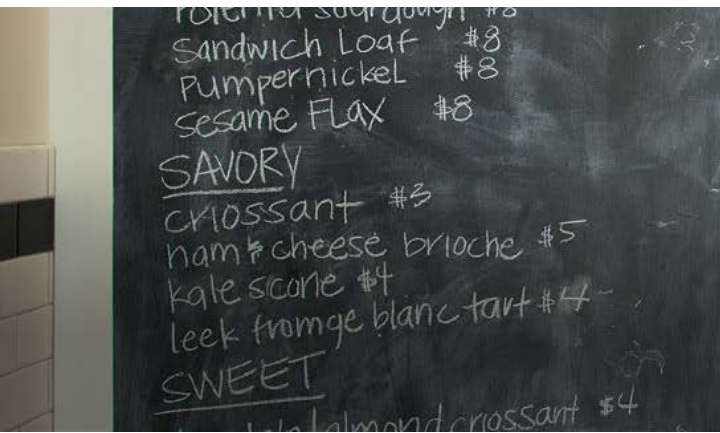 Polenta Sourdough $8
Sandwich Loaf $8
pumpernickel $8
sesame Flax $8
SAVORY
criossant $3
ham & cheese brioche $5
kale scone $4
leek fromge blanc tart $4
SWEET
almond criossant $4